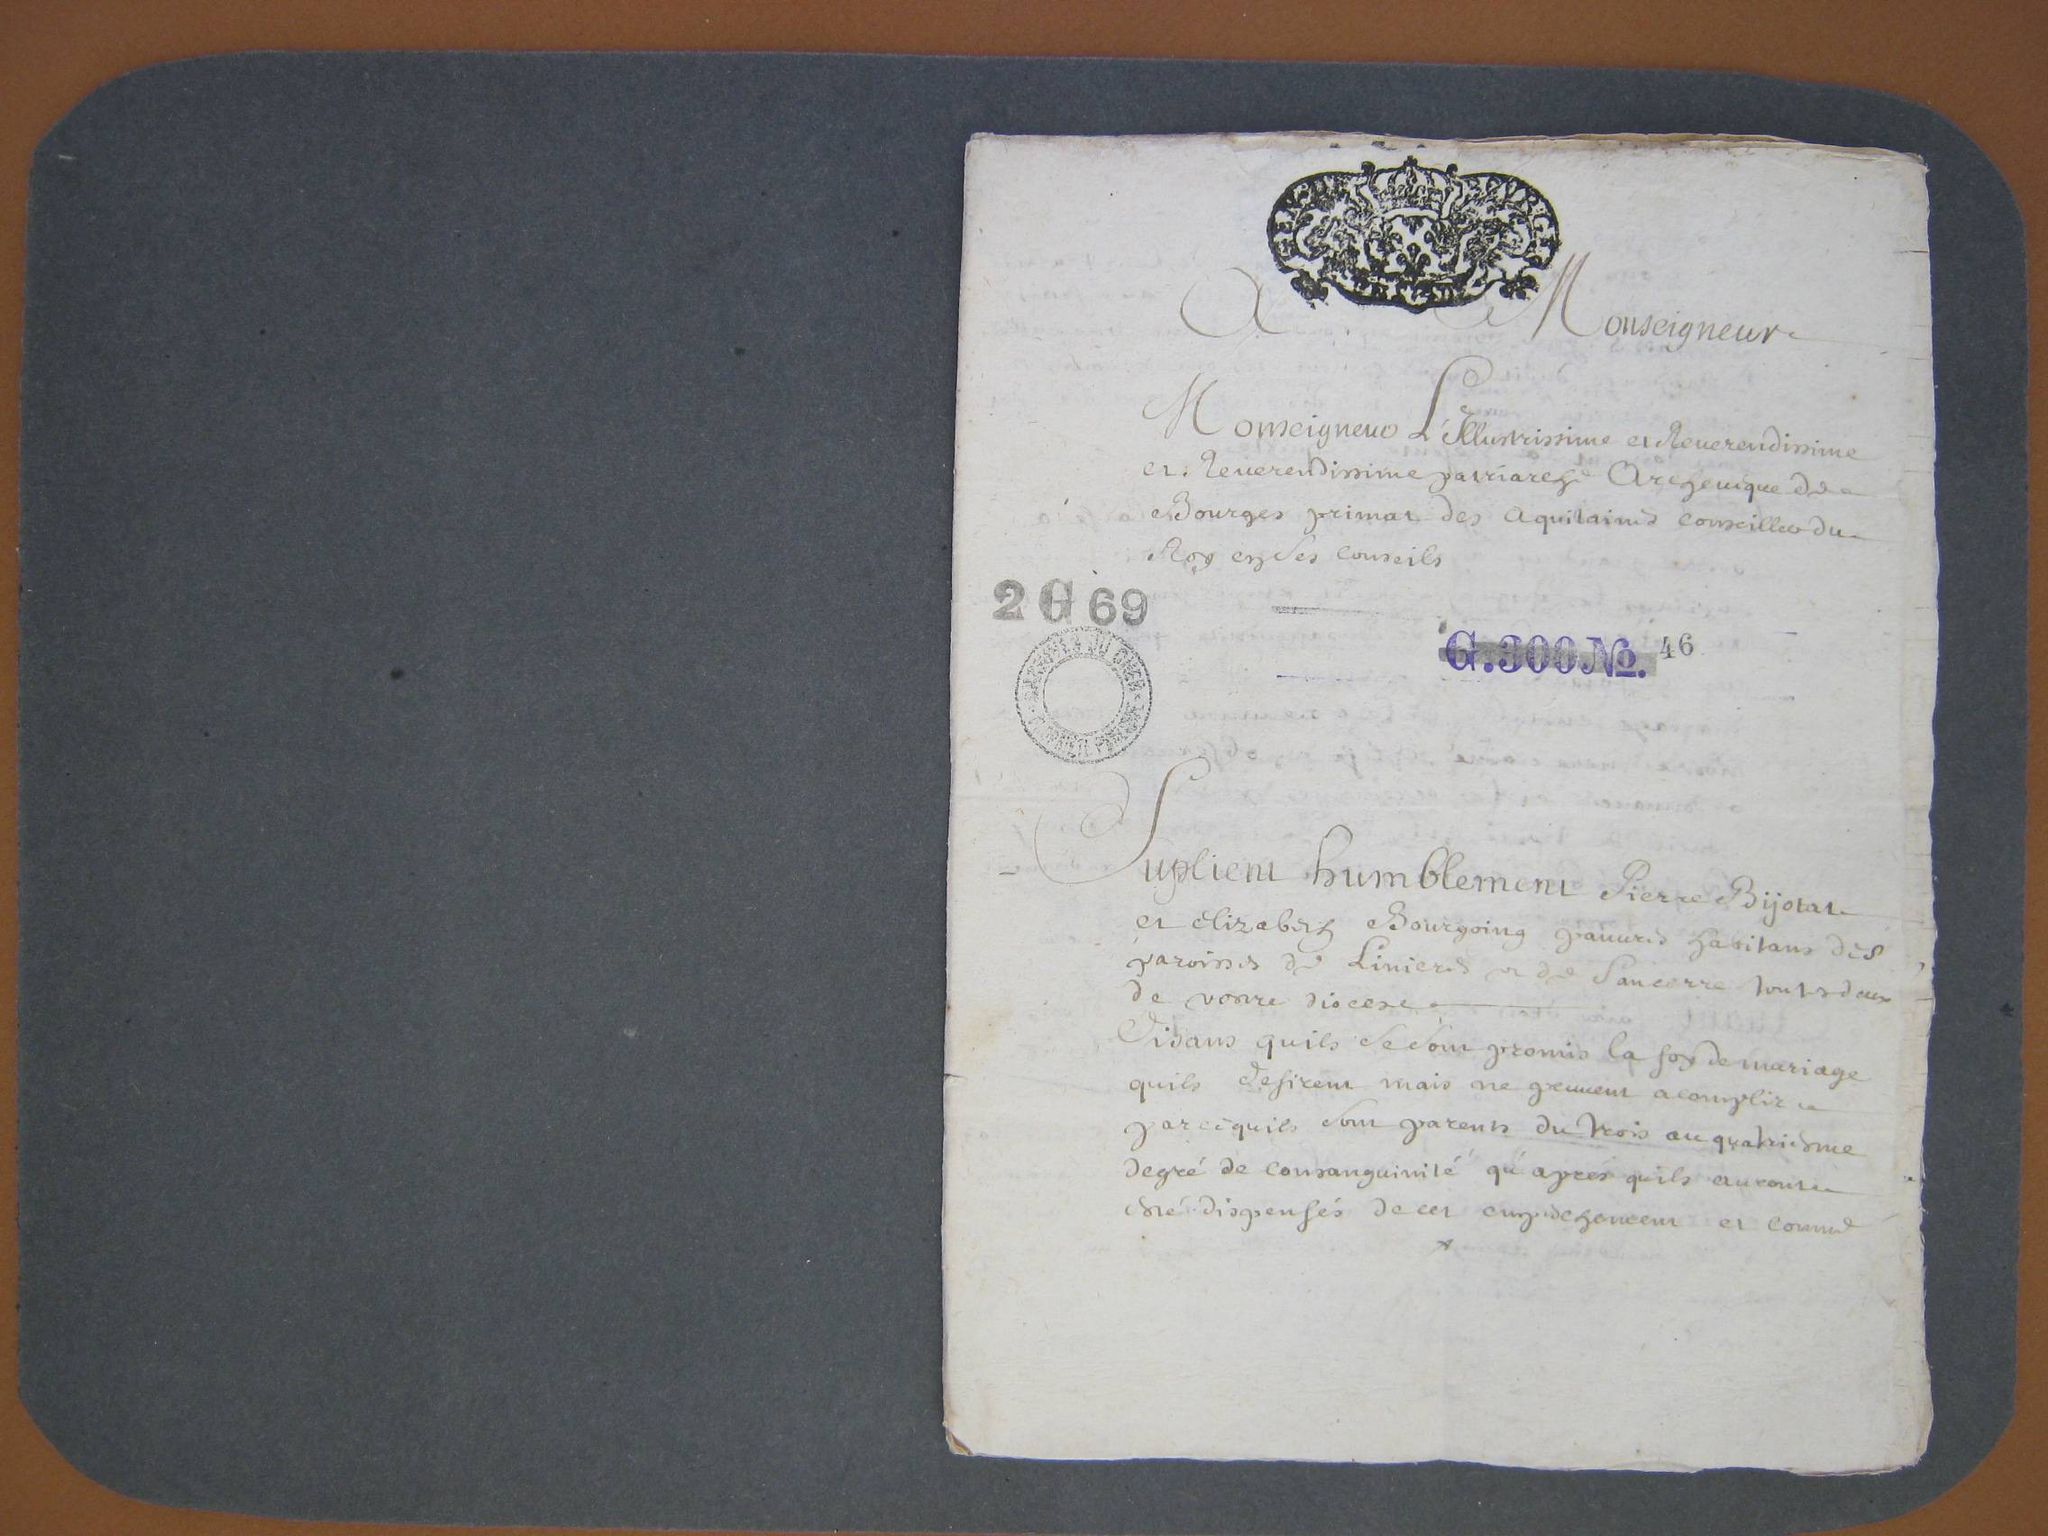 A Monseigneur
Monseigneur L'Illustrissime et Reverendissime
et Reverendissime patriarche Archeuique de
Bourges primat des aquitaines conseiller du
Roy en ses conseils
2 G 69
G.300 No. 46
Suplient humblement Pierre Bijotat
et Elizabeth Bourgoing pauures habitans des
paroisses de Linieres et de Sancerre touts deux
de vostre diocese
Disans quils se sont promis la foy de mariage
quils desirent mais ne peuuent acomplir
parcequils sont parents du trois au quatriesme
degré de consanguinité qu'apres quils auront
esté dispensés de cet empechement et comme